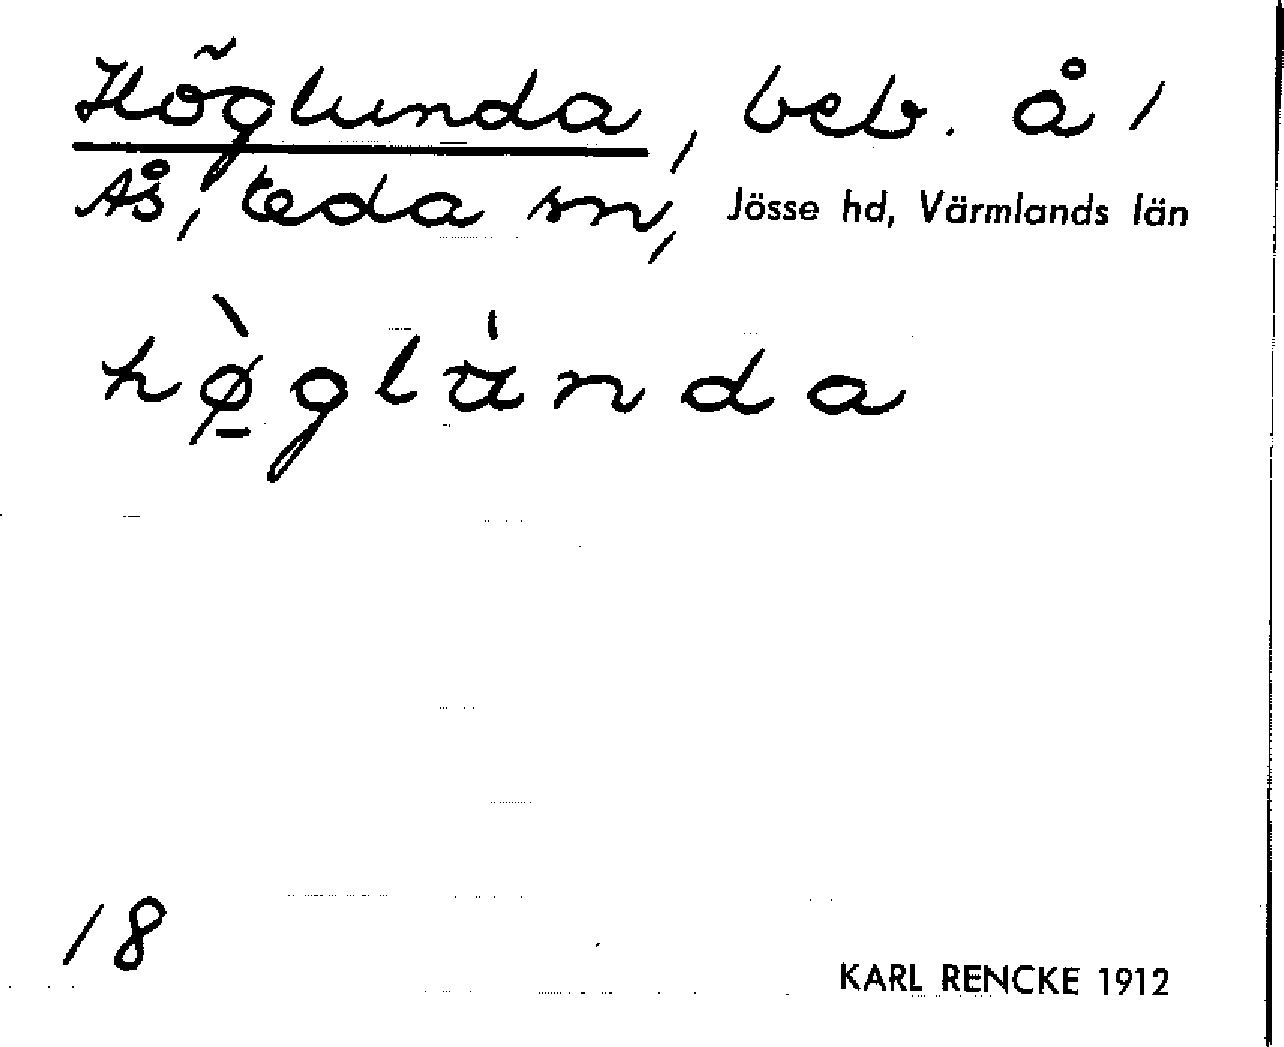 Höglunda, beb. å 1
Ås, Eda sn, Jösse hd, Värmlands län
hø̱̀glu̇nda
18
KARL RENCKE 1912